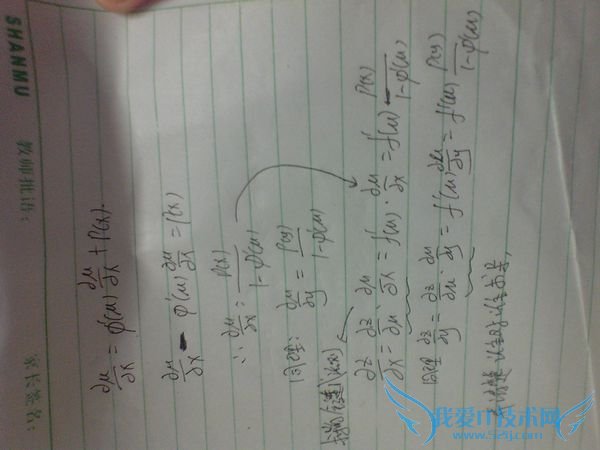 SHANMU
教师批语:
家长签名:
∂u/∂x = φ'(u) ∂u/∂x + P(x).
∂u/∂x - φ'(u) ∂u/∂x = P(x)
∴ ∂u/∂x = P(x)/1-φ'(u)
同理: ∂u/∂y = P(y)/1-φ'(u)
∂z/∂x = ∂z/∂u · ∂u/∂x = f'(u) · ∂u/∂x = f'(u) P(x)/1-φ'(u)
同理 ∂z/∂y = ∂z/∂u · ∂u/∂y = f'(u) ∂u/∂y = f'(u) P(y)/1-φ'(u)
我爱IT技术网
www.52ij.com